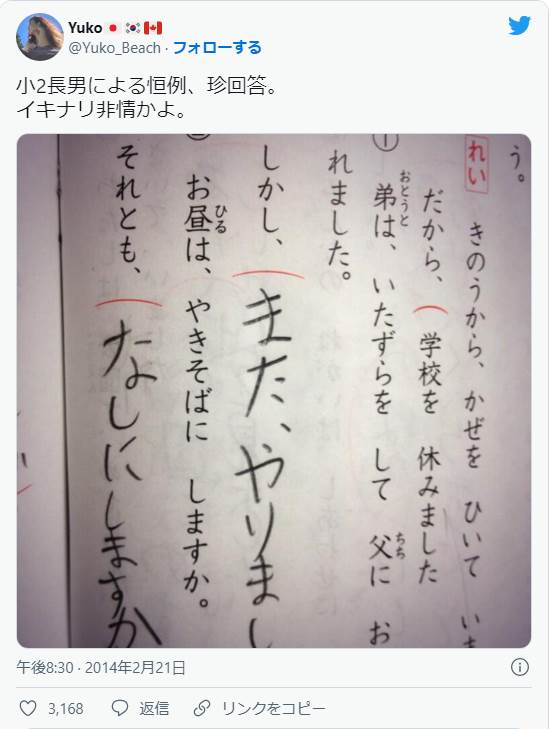 Yuko🇯🇵🇰🇷🇨🇦
@Yuko_Beach · フォローする
小2長男による恒例、珍回答。
イキナリ非情かよ。
う。
れい きのうから、かぜを ひいて いま
だから、( 学校を 休みました
おとうと ちち
① 弟は、いたずらを して 父に お
れました。
しかし、( また、やりまし
ひる
お昼は、やきそばに しますか。
それとも、( なしにしますか
午後8:30 · 2014年2月21日
3,168 返信 リンクをコピー